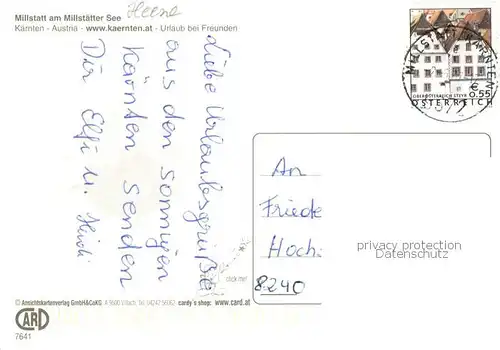 Millstatt am Millstätter See
Kärnten - Austria - www.kaernten.at - Urlaub bei Freunden
Liebe Urlaubsgrüße
aus dem sonnigen
Kärnten senden
Dir Elfi u. Heidi
MILLSTATT KÄRNTEN
€
0.55
OBERÖSTERREICH STEYR
ÖSTERREICH
An
Friede
Hoch
8240
privacy protection
Datenschutz
click me!
© Ansichtskartenverlag GmbH&CoKG A 9500 Villach, Tel. 04247 56062 cardy´s shop: www.card.at
CARD
7641